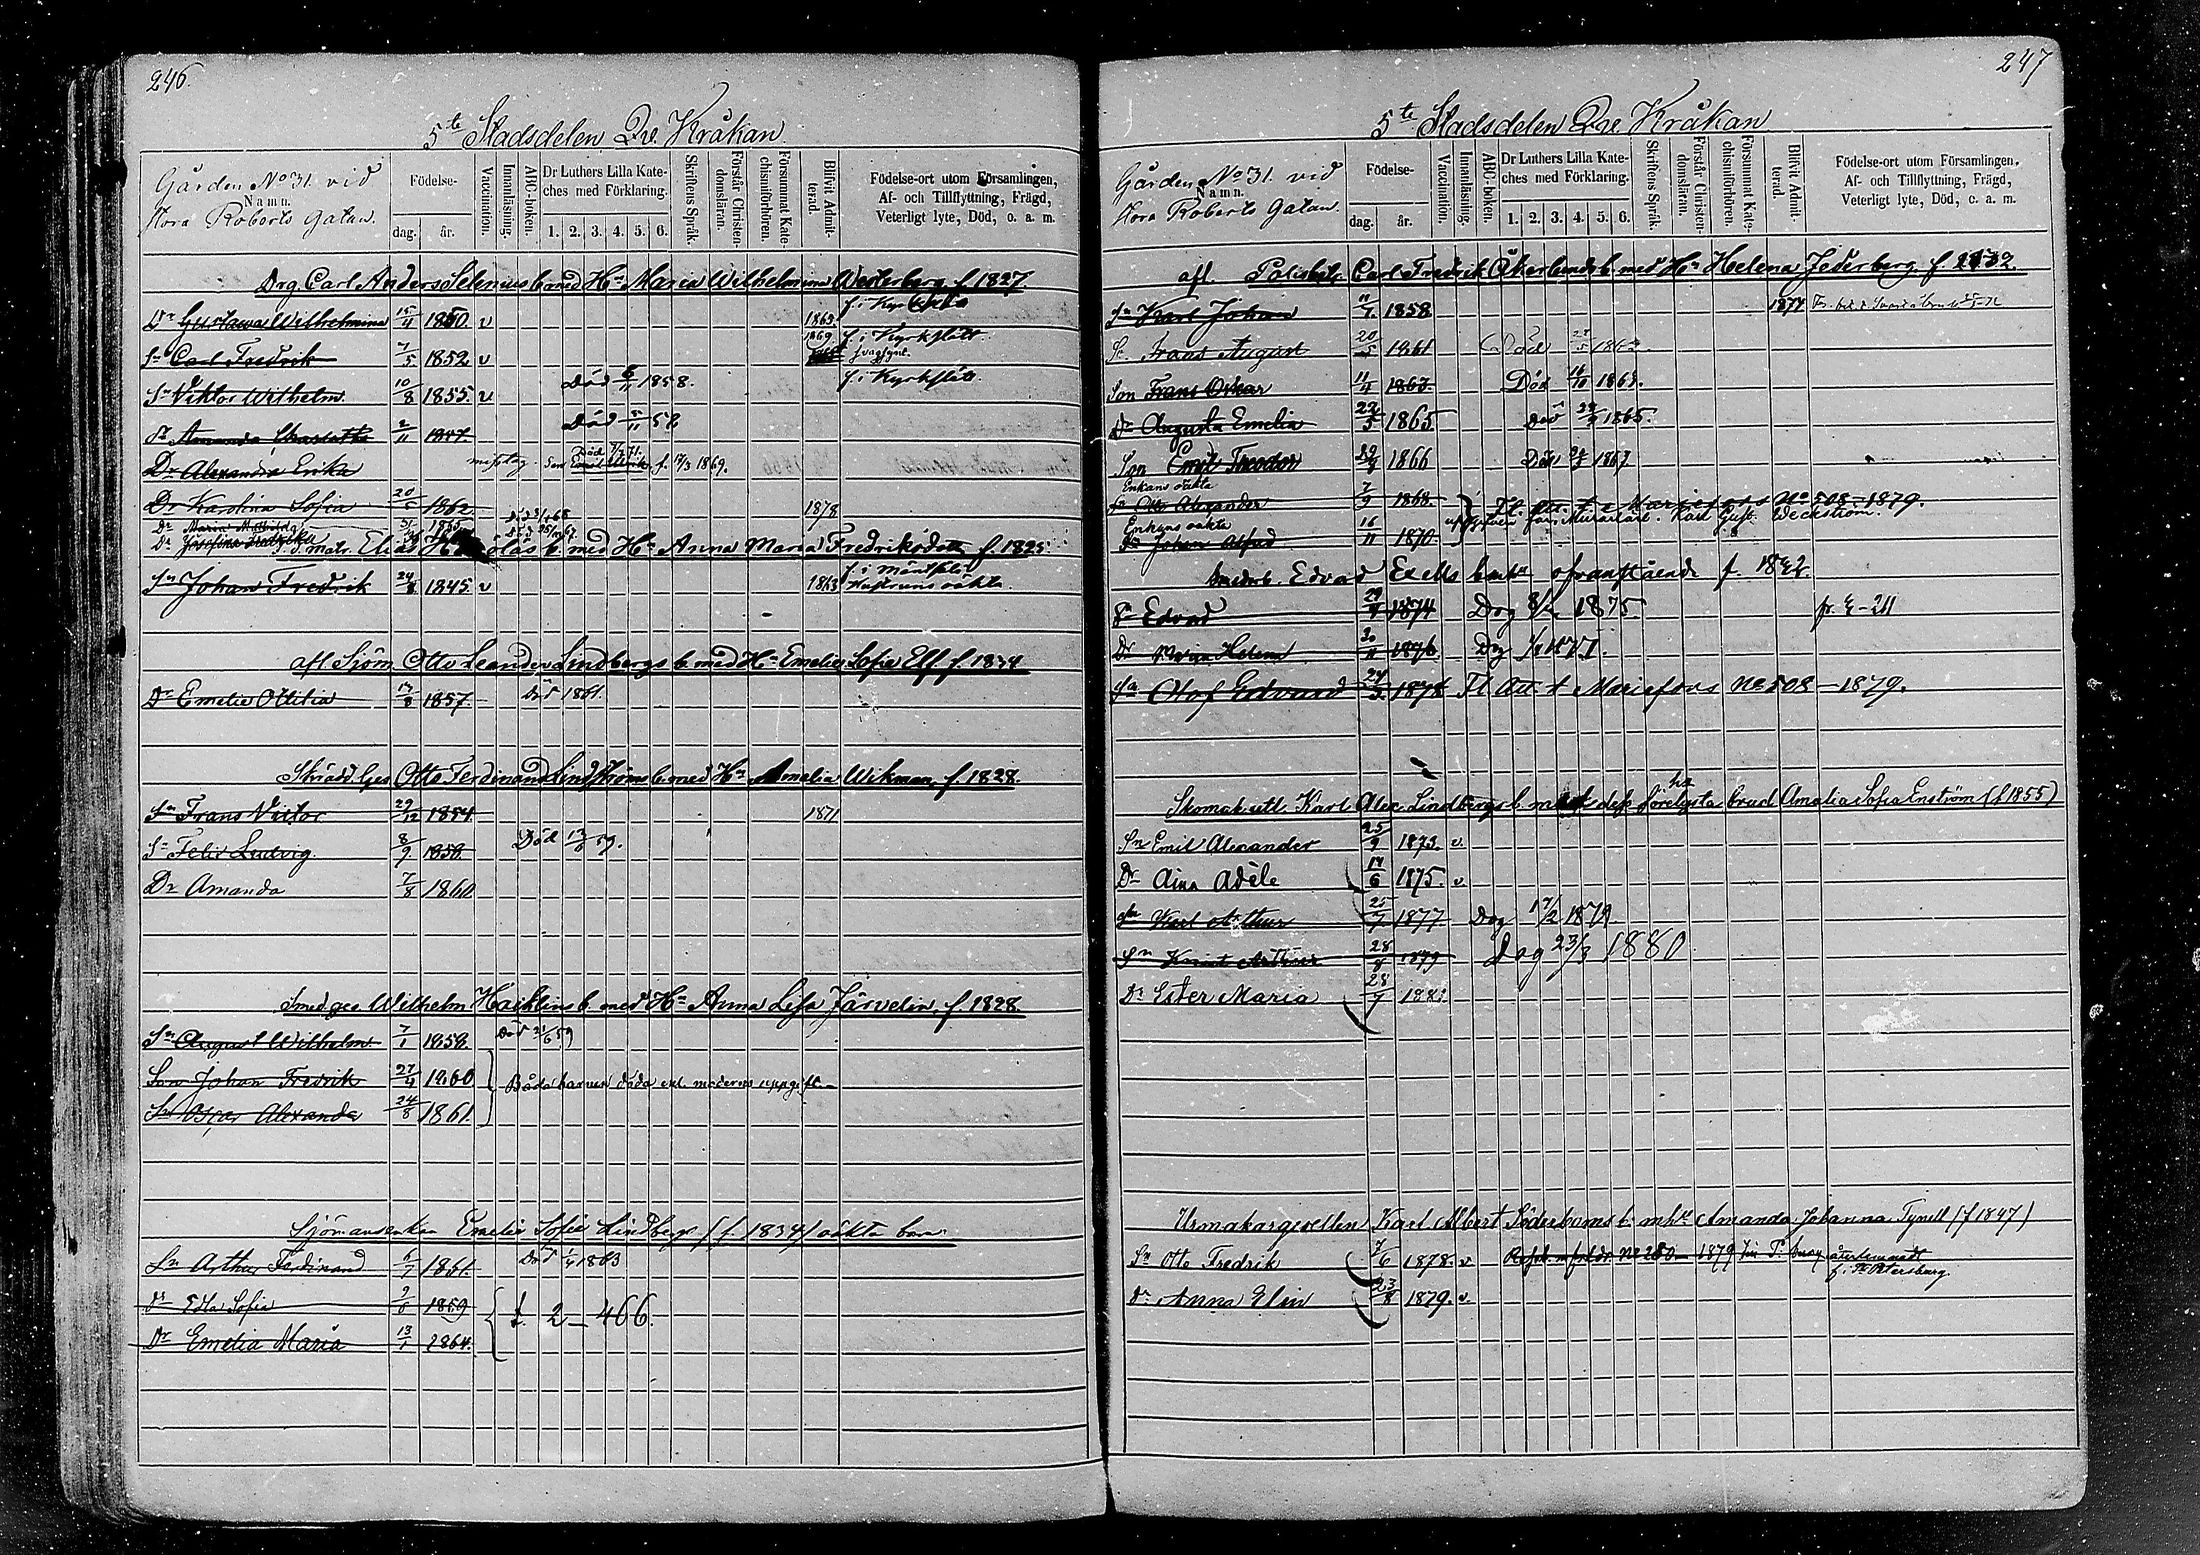 246.
5te Stadsdelen Qve. Kråkan
Gården No 31. vid
Namn.
Stora Roberts Gatan.
Födelse-
dag.
år.
Vaccination.
Innanläsning.
ABC-boken.
Dr Luthers Lilla Kate-
ches med Förklaring.
1. 2. 3. 4. 5. 6.
Skriftens Språk.
Förstår Christen-
domsläran.
Försummat Kate-
chismiförhören.
Blifvit Admit-
terad.
Födelse-ort utom Församlingen,
Af- och Tillflyttning, Frägd,
Veterligt lyte, Död, o. a. m.
Drg Carl Anders Selenius b. med Hu Maria Wilhelmina Westerberg f. 1827.
Dr Gustawa Wilhelmina 15/4 1850 v 1869. f. i Kyrkslätt
Sn Carl Fredrik 7/5 1852 v 1869 f. i Kyrkslätt. svagsynt.
Sn Viktor Wilhelm 10/8 1855. v Död 6/11 1858. f. i Kyrkslätt.
Amanda Charlotta 2/11 1857 Död 5/11 58
Dr Alexandra Erika misstag. Son Emil Ulrik f. 17/3 1869. Död 7/7 71.
Dr Karolina Sofia 20/5 1862 1878
Dr Maria Mathilda
Dr Josefina Fredrika
Elias b. med Hu Anna Maria Fredriksdotter f. 1825
Sn Johan Fredrik 24/8 1845. v 1863 f. i Mäntsälä Hustruns oäkta.
afl Sjöm. Otto Leander Lindbergs b. med Hu Emelie Sofie Elf f. 1834
Dr Emelie Ottilia 17/8 1857. Död 1861.
Skrädd. Ges. Otto Ferdinand Lindströms b. med Hu Amalia Wikman, f. 1828.
Sn Frans Victor 29/12 1854 1871
Sn Felix Ludvig 8/9 1858 Död 13/6 59.
Dr Amanda 7/8 1860
Smedges. Wilhelm Hacklins b. med Hu Anna Lisa Järvelin, f. 1828.
Sn August Wilhelm 7/1 1859. Död 21/6 59
Son Johan Fredrik 27/4 1860
Båda barnen döda enl. moderns uppgift.
Sn Oscar Alexander 24/8 1861.
Sjömansenkan Emelie Sofie Lindberg (f. 1834) oäkta barn
Sn Arthur Ferdinand 6/7 1861. Död 1/4 1863
Dr Edla Sofia 9/6 1859
f. 2 - 466.
Dr Emelia Maria 13/1 1864.
247
5te Stadsdelen Qve. Kråkan
Gården No 31. vid
Namn.
Stora Roberts Gatan.
Födelse-
dag.
år.
Vaccination.
Innanläsning.
ABC-boken.
Dr Luthers Lilla Kate-
ches med Förklaring.
1. 2. 3. 4. 5. 6.
Skriftens Språk.
Förstår Christen-
domsläran.
Försummat Kate-
chismiförhören.
Blifvit Admit-
terad.
Födelse-ort utom Församlingen,
Af- och Tillflyttning, Frägd,
Veterligt lyte, Död, o. a. m.
afl. Carl Fredrik Åkerlunds b. med Hu Helena Jederberg f. 1832.
Sn Karl Johan 11/7 1858 1874
Sn Frans August 20/5 1861 Död
Son Frans Oskar 11/4 1863 Död 16/10 1863.
Dr Augusta Emelia 22/5 1865 Död 1865.
Son Emil Theodor 1866 Död 1867.
Enkans oäkta
Sn Otto Alexander 7/9 1868. Fl. att. t. e Mariefors No 508 - 1879.
Enkans oäkta
Sn Johan Alfred 16/11 1870 Karl Gust. Weckström.
Edvard Exells b. m hu ofvanstående f. 1842
Sn Edvard 1874 Dog 1875. fr. - 211
Dr Helena 20/11 1876 Dog 1877.
Sn Olof Edvard 24/3 1878 Fl. Att. t Mariefors No 508 - 1879.
Skomak. utl. Karl Alex. Lindbergs b. med dess förelgsta brud Amalia Sofia Enström (f 1855)
Sn Emil Alexander 25/9 1873. v.
Dr Aina Adèle 14/6 1875. v.
Sn Karl Arthur 25/7 1877 Dog 17/2 1879.
Sn Knut Arthur 28/8 1879 Dog 23/3 1880
Dr Ester Maria 28/7
Urmakargesellen Karl Albert Söderboms b. m hu Amanda Johanna Tynell (f 1847)
Sn Otto Fredrik 7/6 1878. v No 280 - 1879 återkommit
f. i St Petersburg.
Dr Anna Elin 23/8 1879. v.